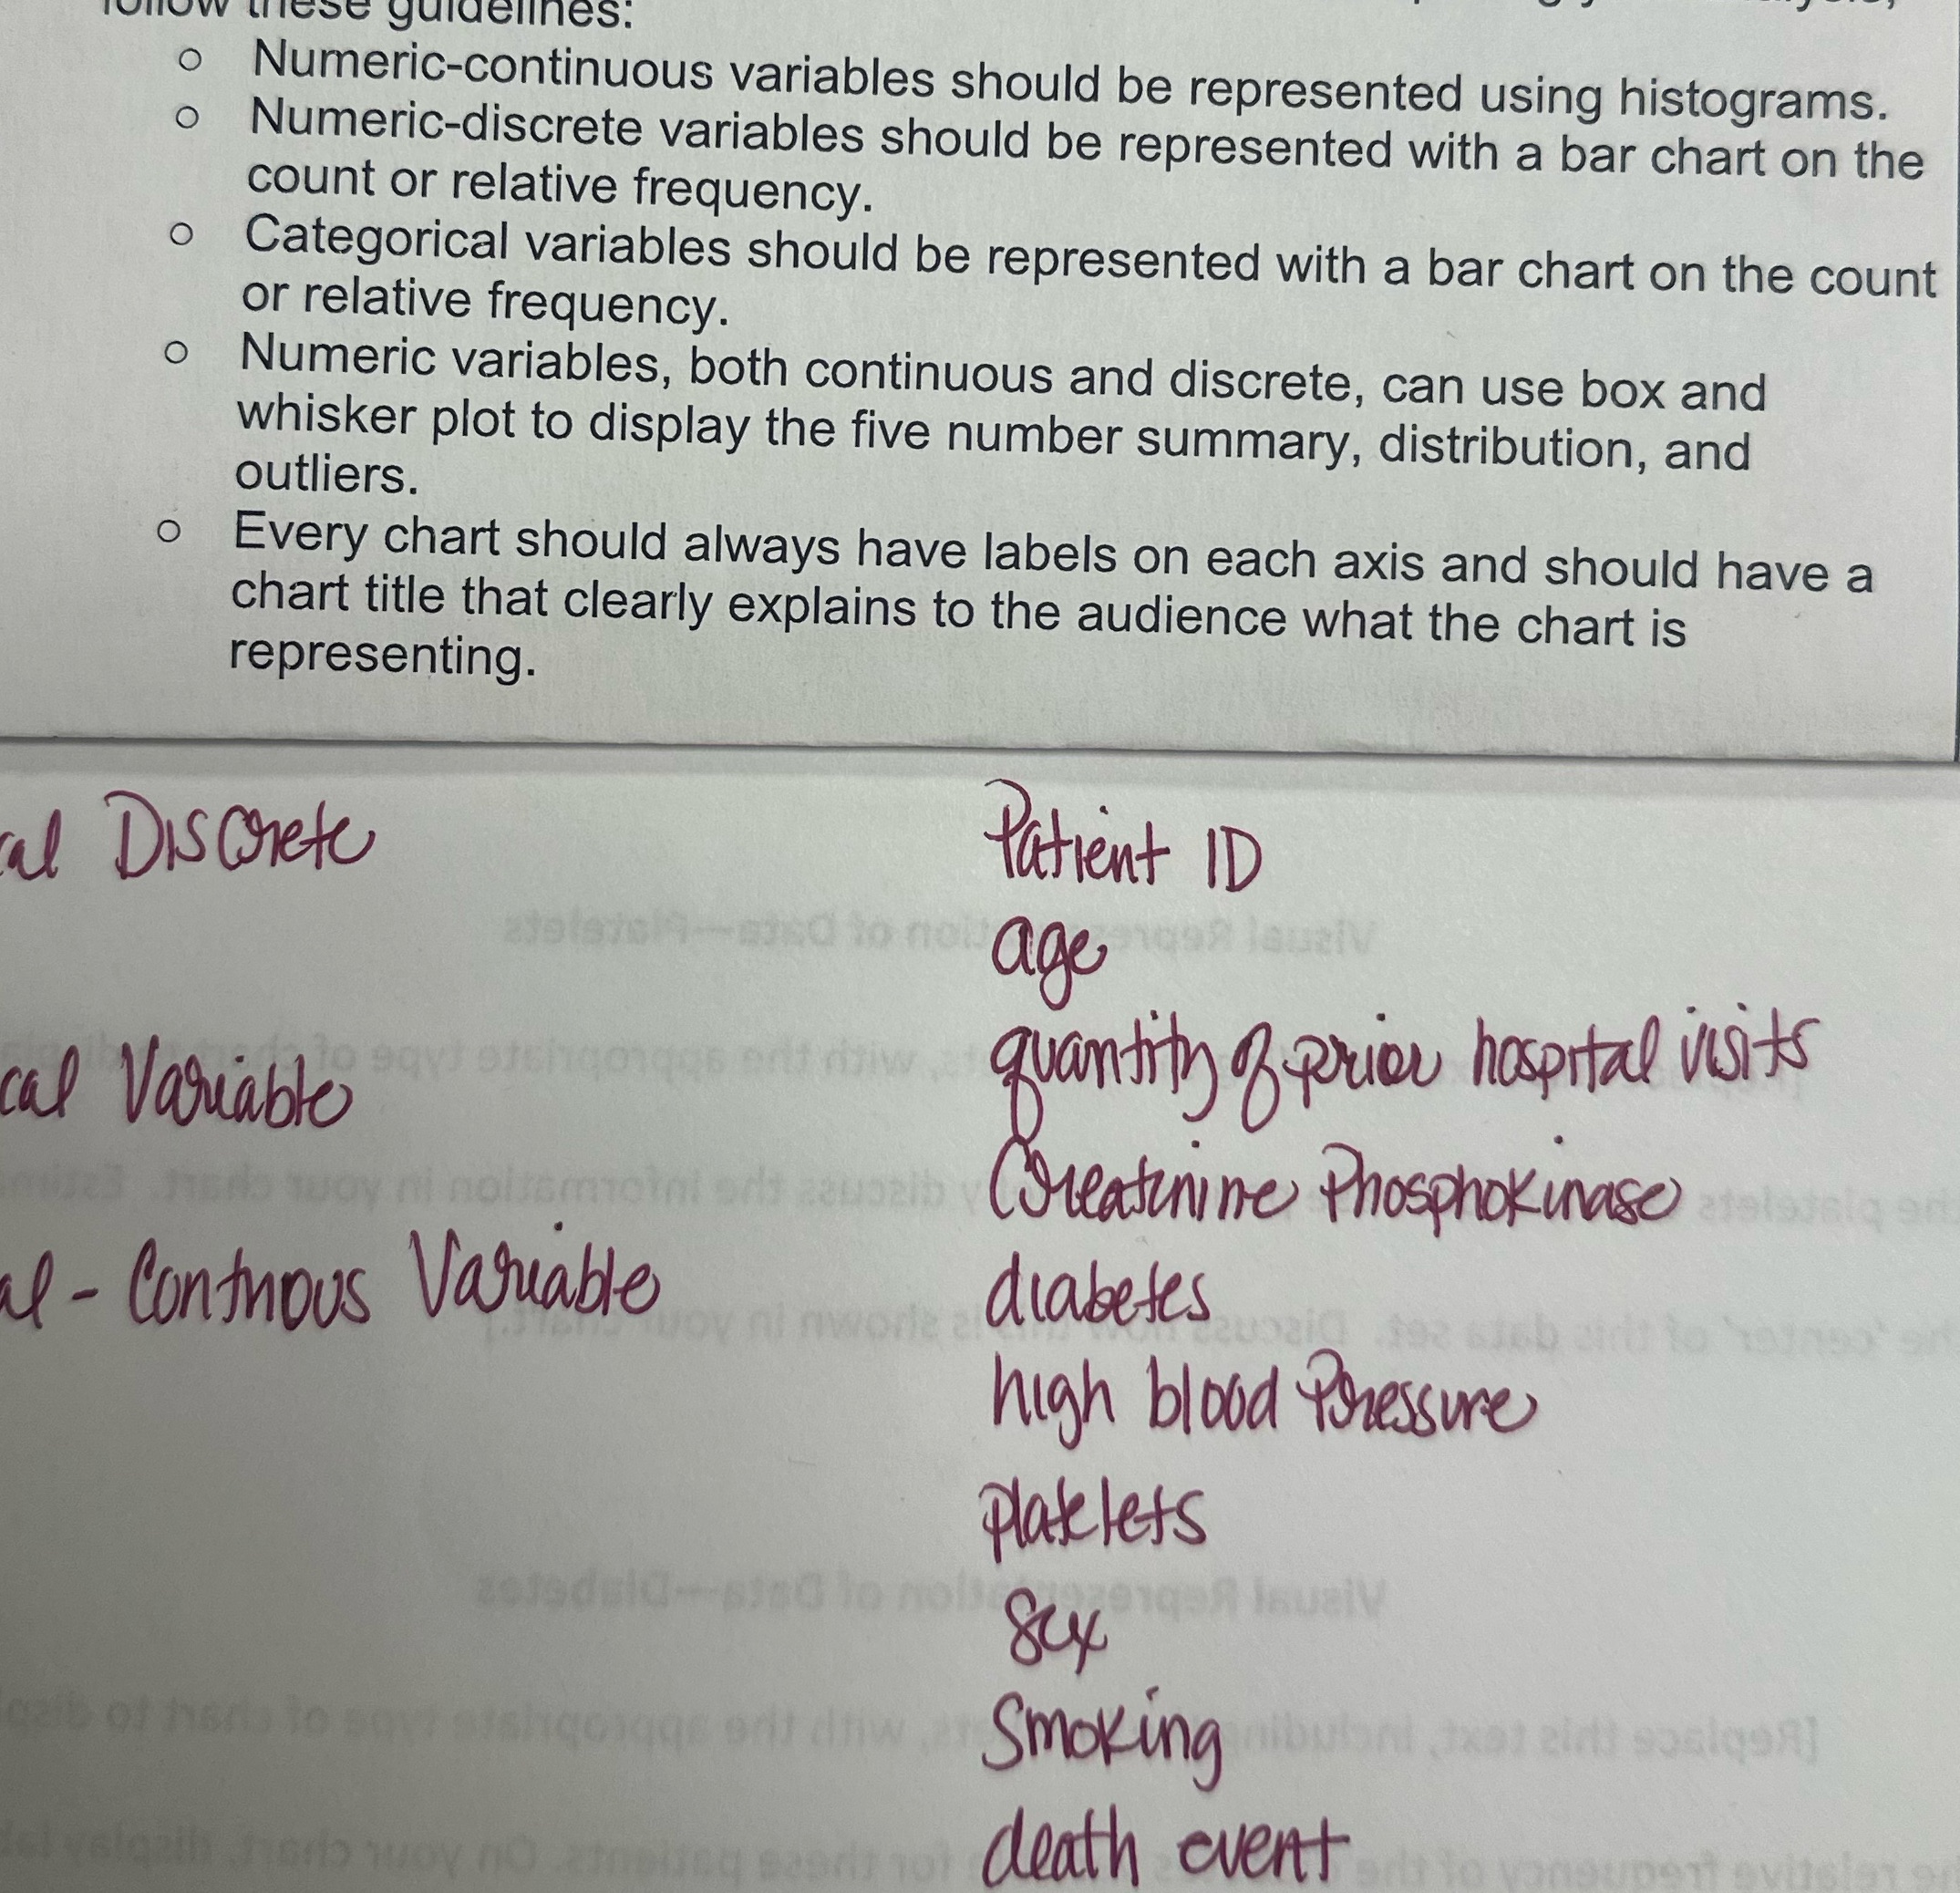 follow these guidelines:
○ Numeric-continuous variables should be represented using histograms.
○ Numeric-discrete variables should be represented with a bar chart on the
count or relative frequency.
○ Categorical variables should be represented with a bar chart on the count
or relative frequency.
○ Numeric variables, both continuous and discrete, can use box and
whisker plot to display the five number summary, distribution, and
outliers.
○ Every chart should always have labels on each axis and should have a
chart title that clearly explains to the audience what the chart is
representing.
al Discrete
Patient ID
age
quantity of prior hospital visits
cal Variable
Creatinine Phosphokinase
al - Contnous Variable
diabetes
high blood Pressure
platelets
Sex
Smoking
death event